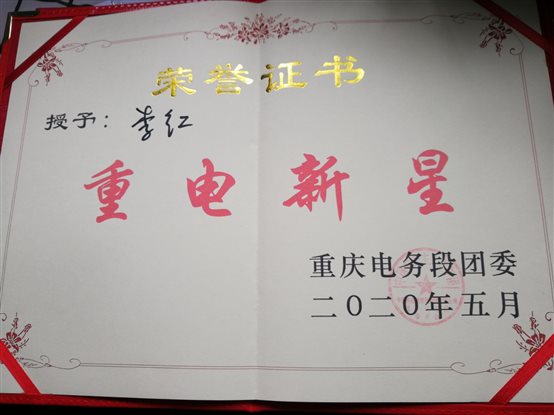 荣誉证书
授予：李红
重电新星
重庆电务段团委
二〇二〇年五月